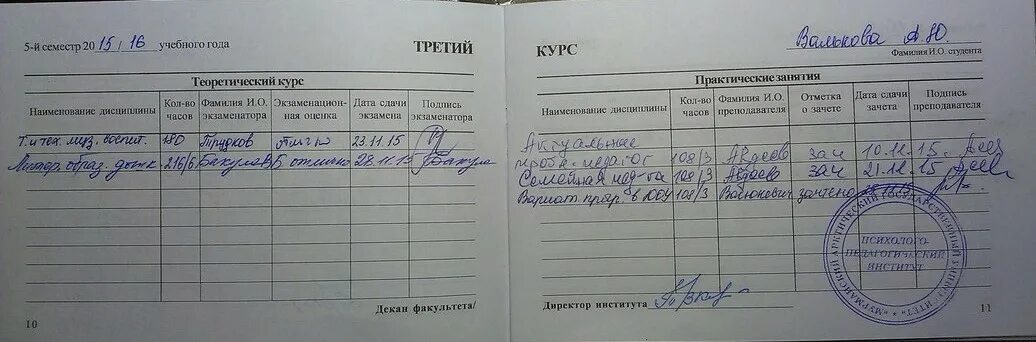 5-й семестр 2015/16 учебного года ТРЕТИЙ
Теоретический курс
Наименование дисциплины Кол-во часов Фамилия И.О. экзаменатора Экзаменацион-ная оценка Дата сдачи экзамена Подпись экзаменатора
Т. и тех. муз. воспит. 180 Трудков 23.11.15
образ. дошк 216/6 отлично 28.11.15
Декан факультета/
10
КУРС Валькова А.Ю.
Фамилия И.О. студента
Практические занятия
Наименование дисциплины Кол-во часов Фамилия И.О. преподавателя Отметка о зачете Дата сдачи зачета Подпись преподавателя
Актуальные
пробл. педагог 108/3 Авдеева зач 10.11.15.
Семейная пед-ка 108/3 Авдеева зач 21.12.15
Вариат прогр. в ДОУ 108/3 Васюкевич зачтено
Директор института
11
ПСИХОЛОГО-
ПЕДАГОГИЧЕСКИЙ
ИНСТИТУТ
МУРМАНСКИЙ АРКТИЧЕСКИЙ ГОСУДАРСТВЕННЫЙ УНИВЕРСИТЕТ